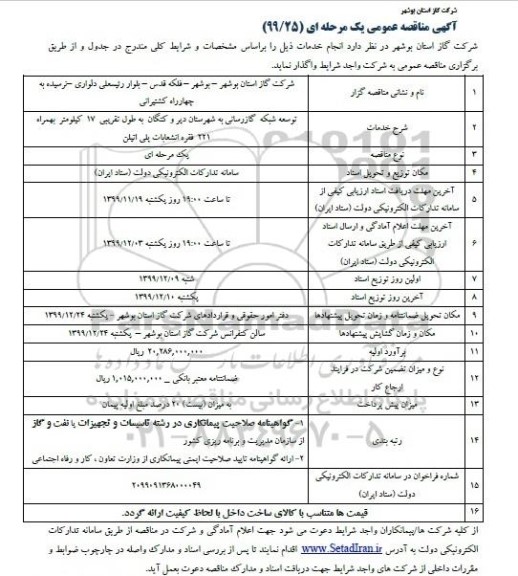 شرکت گاز استان بوشهر
آگهی مناقصه عمومی یک مرحله ای (۹۹/۲۵)
شرکت گاز استان بوشهر در نظر دارد انجام خدمات ذیل را براساس مشخصات و شرایط کلی مندرج در جدول و از طریق
برگزاری مناقصه عمومی به شرکت واجد شرایط واگذار نماید.
۱ نام و نشانی مناقصه گزار شرکت گاز استان بوشهر – بوشهر – فلکه قدس – بلوار رئیسعلی دلواری –نرسیده به
چهارراه کشتیرانی
۲ شرح خدمات توسعه شبکه گازرسانی به شهرستان دیر و کنگان به طول تقریبی ۱۷ کیلومتر بهمراه
۲۲۱ فقره انشعابات پلی اتیلن
۳ نوع مناقصه یک مرحله ای
۴ مکان توزیع و تحویل اسناد سامانه تدارکات الکترونیکی دولت (ستاد ایران)
۵ آخرین مهلت دریافت اسناد ارزیابی کیفی از
سامانه تدارکات الکترونیکی دولت (ستاد ایران) تا ساعت ۱۹:۰۰ روز یکشنبه ۱۳۹۹/۱۱/۱۹
۶ آخرین مهلت اعلام آمادگی و ارسال اسناد
ارزیابی کیفی از طریق سامانه تدارکات
الکترونیکی دولت (ستاد ایران) تا ساعت ۱۹:۰۰ روز یکشنبه ۱۳۹۹/۱۲/۰۳
۷ اولین روز توزیع اسناد شنبه ۱۳۹۹/۱۲/۰۹
۸ آخرین روز توزیع اسناد یکشنبه ۱۳۹۹/۱۲/۱۰
۹ مکان تحویل ضمانتنامه و زمان تحویل پیشنهادها دفتر امور حقوقی و قراردادهای شرکت گاز استان بوشهر – یکشنبه ۱۳۹۹/۱۲/۲۴
۱۰ مکان و زمان گشایش پیشنهادها سالن کنفرانس شرکت گاز استان بوشهر – یکشنبه ۱۳۹۹/۱۲/۲۴
۱۱ برآورد اولیه ۲۰,۲۸۶,۰۰۰,۰۰۰ ریال
۱۲ نوع و میزان تضمین شرکت در فرایند
ارجاع کار ضمانتنامه معتبر بانکی _ ۱,۰۱۵,۰۰۰,۰۰۰ ریال
۱۳ میزان پیش پرداخت به میزان (بیست) ۲۰ درصد مبلغ اولیه پیمان
۱۴ رتبه بندی ۱– گواهینامه صلاحیت پیمانکاری در رشته تاسیسات و تجهیزات یا نفت و گاز
از سازمان مدیریت و برنامه ریزی کشور
۲– ارائه گواهینامه تایید صلاحیت ایمنی پیمانکاری از وزارت تعاون ، کار و رفاه اجتماعی
۱۵ شماره فراخوان در سامانه تدارکات الکترونیکی
دولت (ستاد ایران) ۲۰۹۹۰۹۱۳۶۸۰۰۰۰۴۹
۱۶ قیمت ها متناسب با کالای ساخت داخل با لحاظ کیفیت ارائه گردد.
از کلیه شرکت ها/پیمانکاران واجد شرایط دعوت می شود جهت اعلام آمادگی و شرکت در مناقصه از طریق سامانه تدارکات
الکترونیکی دولت به آدرس www.SetadIran.ir اقدام نمایند تا پس از بررسی اسناد و مدارک واصله در چارچوب ضوابط و
مقررات داخلی از شرکت های واجد شرایط جهت دریافت اسناد و مدارک مناقصه دعوت بعمل آید.